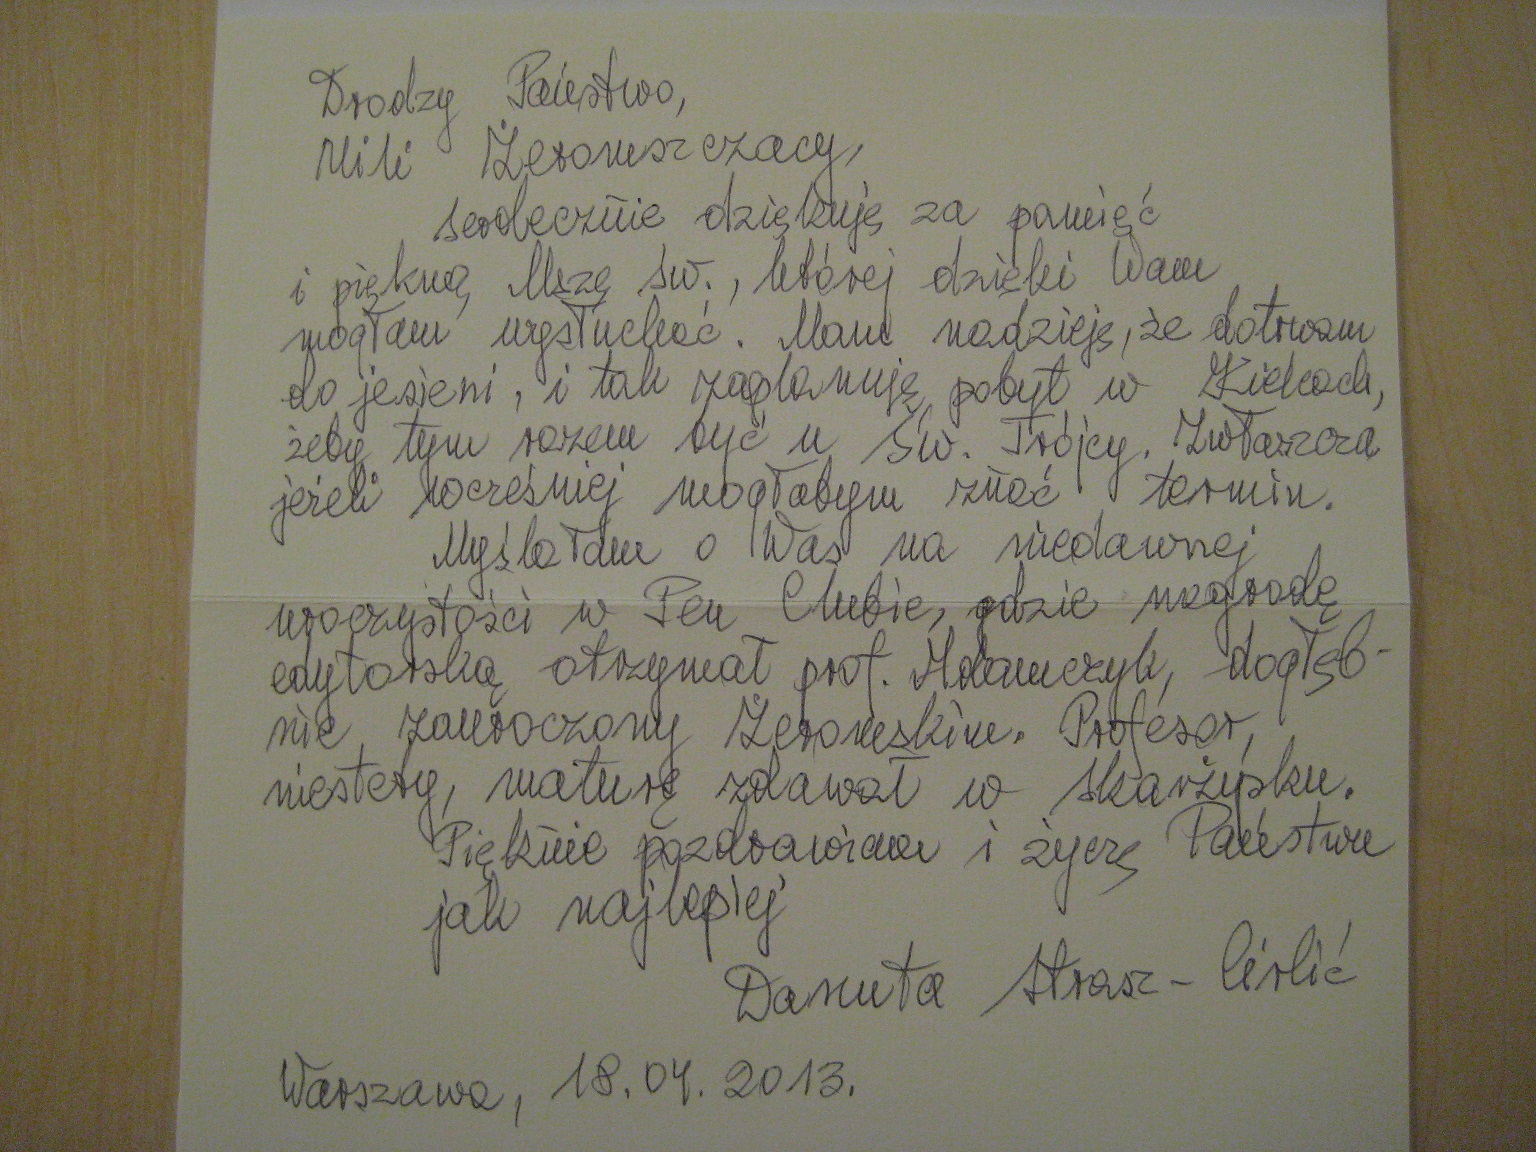 Drodzy Państwo,
Mili Żeromszczacy,
serdecznie dziękuję za pamięć
i piękną Mszę św., której dzięki Wam
mogłam wysłuchać. Mam nadzieję, że dotrwam
do jesieni, i tak zaplanuję pobyt w Kielcach,
żeby tym razem być u Św. Trójcy. Zwłaszcza
jeżeli wcześniej mogłabym znać termin.
Myślałam o Was na niedawnej
uroczystości w Pen Clubie, gdzie nagrodę
edytorską otrzymał prof. Adamczyk, dogłęb-
nie zauroczony Żeromskim. Profesor,
niestety, maturę zdawał w Skarżysku.
Pięknie pozdrawiam i życzę Państwu
jak najlepiej
Danuta Strasz-Cirlić
Warszawa, 18.04.2013.